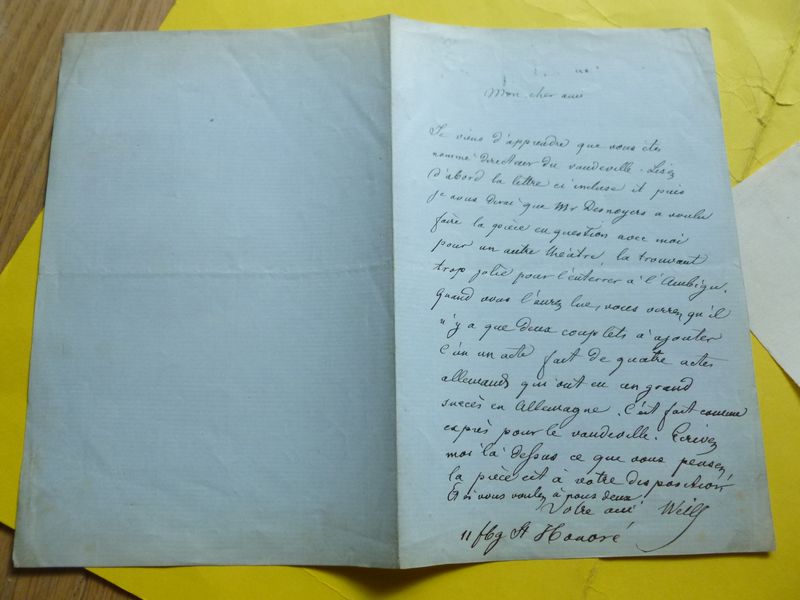 Mon cher ami
Je viens d'apprendre que vous êtes
nommé directeur du vaudeville. Lisez
d'abord la lettre ci incluse et puis
je vous dirai que Mr Desnoyers a voulu
faire la pièce en question avec moi
pour un autre théâtre, la trouvant
trop jolie pour l'enterrer à l'Ambigu.
Quand vous l'aurez lue, vous verrez qu'il
n'y a que deux couplets à ajouter
C'est un acte fait de quatre actes
allemands qui ont eu un grand
succès en Allemagne. C'est fait comme
exprès pour le vaudeville. Ecrivez
moi là dessus ce que vous pensez,
la pièce est à votre disposition
Et si vous voulez à nous deux.
Votre ami Weill
11 fbg St Honoré